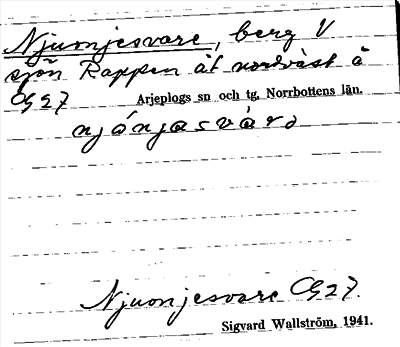 Njuonjesvare, berg V
sjön Rappen åt nordväst å
G27
Arjeplogs sn och tg. Norrbottens län.
njåŋjasvàro
Njuonjesvare G27.
Sigvard Wallström, 1941.